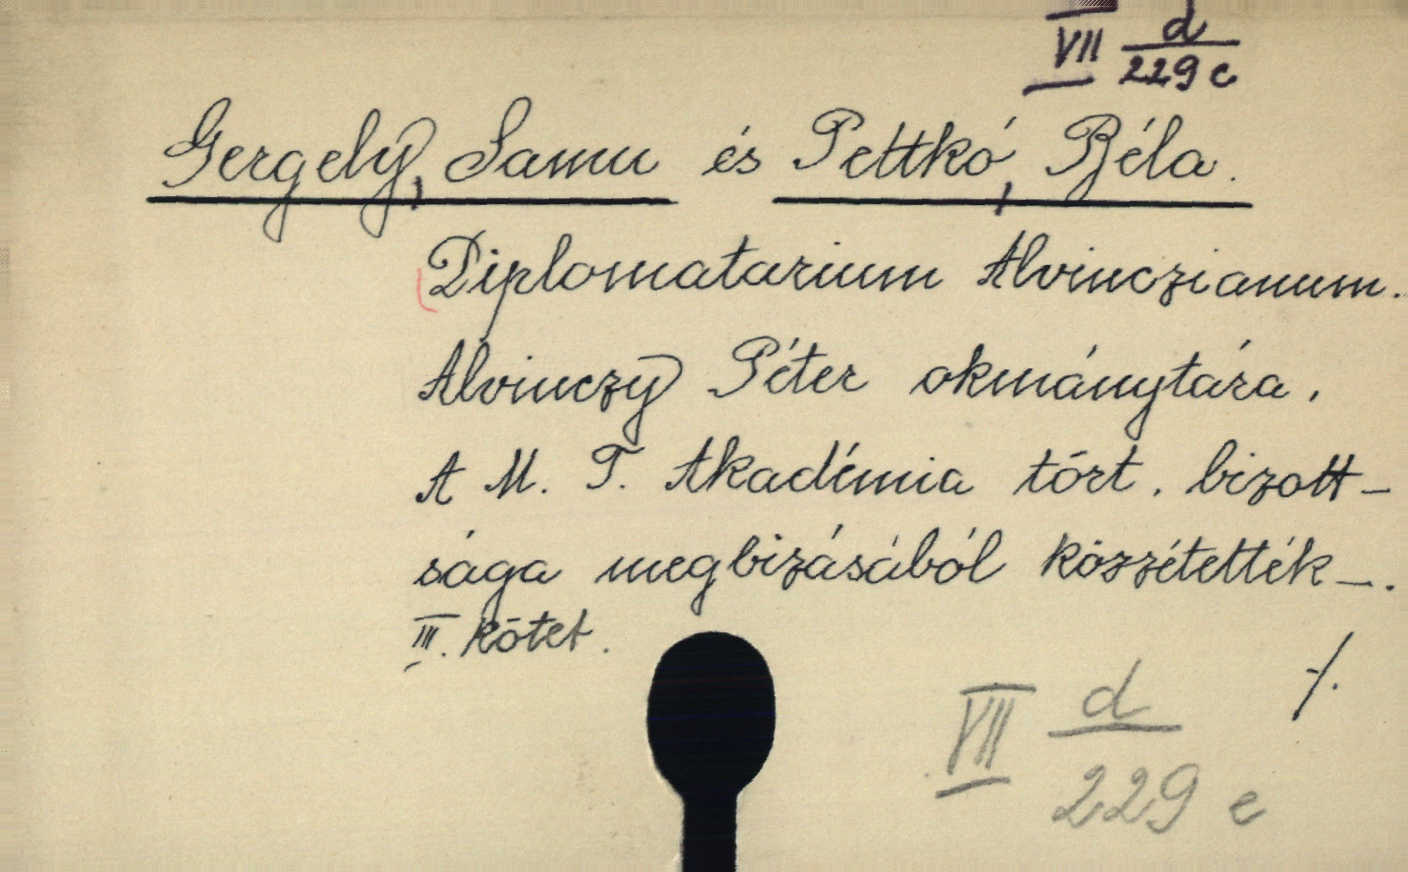 VII d/229 c
Gergely, Samu és Pettkó, Béla.
Diplomatarium Alvinczianum.
Alvinczy Péter okmánytára.
A M. T. Akadémia tört. bizott-
sága megbizásából közzétették –.
III. kötet.
./.
VII d/229 c